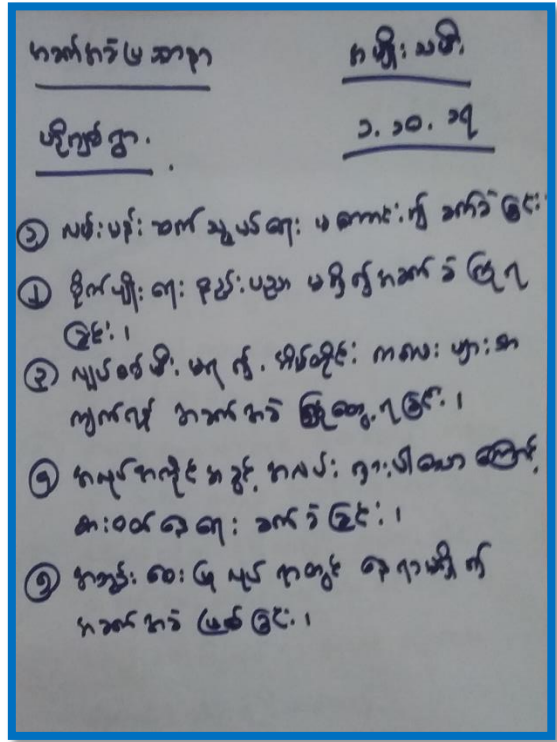 အခက်အခဲ ပြဿနာ
အမျိုးသမီး
ပဒိုကျစ်ရွာ.
၁. ၁၀. ၁၇
၁ လမ်းပန်း ဆက်သွယ်ရေး မကောင်း၍ ခက်ခဲ ခြင်း
၂ စိုက်ပျိုးရေး နည်းပညာ မရှိ၍ အခက်ခဲ ကြုံရ
ခြင်း။
၃ လျှပ်စစ်မီး မရ၍. အိမ်တိုင်း ကလေး များ စာ
ကျက်လို့ အခက်အခဲ ကြုံတွေ့ ရခြင်း။
၄ အလုပ်အကိုင် အခွင့် အလမ်း ရှားပါးသော ကြောင့်
စားဝတ်နေရေး ခက်ခဲ ခြင်း။
၅ အဘွား လေး ပြု လုပ် ရာတွင် နေရာမရှိ၍
အခက်အခဲ ဖြစ်ခြင်း။